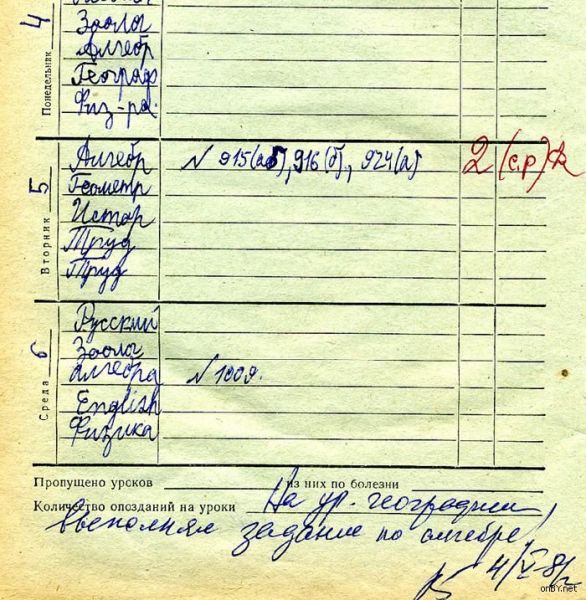 4
Понедельник
Зоолог
Алгебр
Географ
Физ-ра.
5
Вторник
Алгебр N 915(аб), 916(б), 924(а) 2 (с.р)
Геометр
Истор
Труд
Труд
6
Среда
Русский
Зоолог
Алгебра N 1009.
English
Физика
Пропущено уроков из них по болезни
Количество опозданий на уроки На ур. географии
выполнял задание по алгебре!
4/V-8
onBY.net